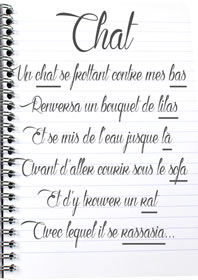 Chat
Un chat se frottant contre mes bas
Renversa un bouquet de lilas
Et se mis de l'eau jusque là
Avant d'aller courir sous le sofa
Et d'y trouver un rat
Avec lequel il se rassasia...